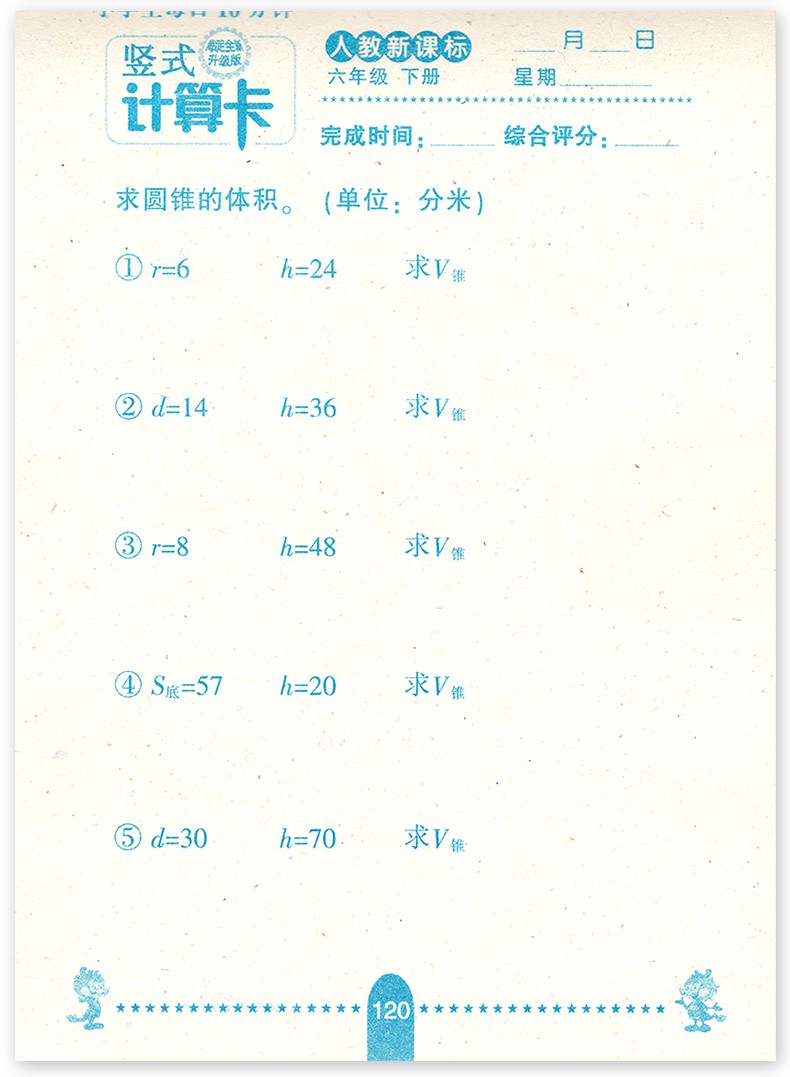 竖式
升级版
计算卡
人教新课标
六年级 下册
___月___日
星期______
完成时间：_____ 综合评分：_____
求圆锥的体积。（单位：分米）
① r=6 h=24 求V锥
② d=14 h=36 求V锥
③ r=8 h=48 求V锥
④ S底=57 h=20 求V锥
⑤ d=30 h=70 求V锥
120